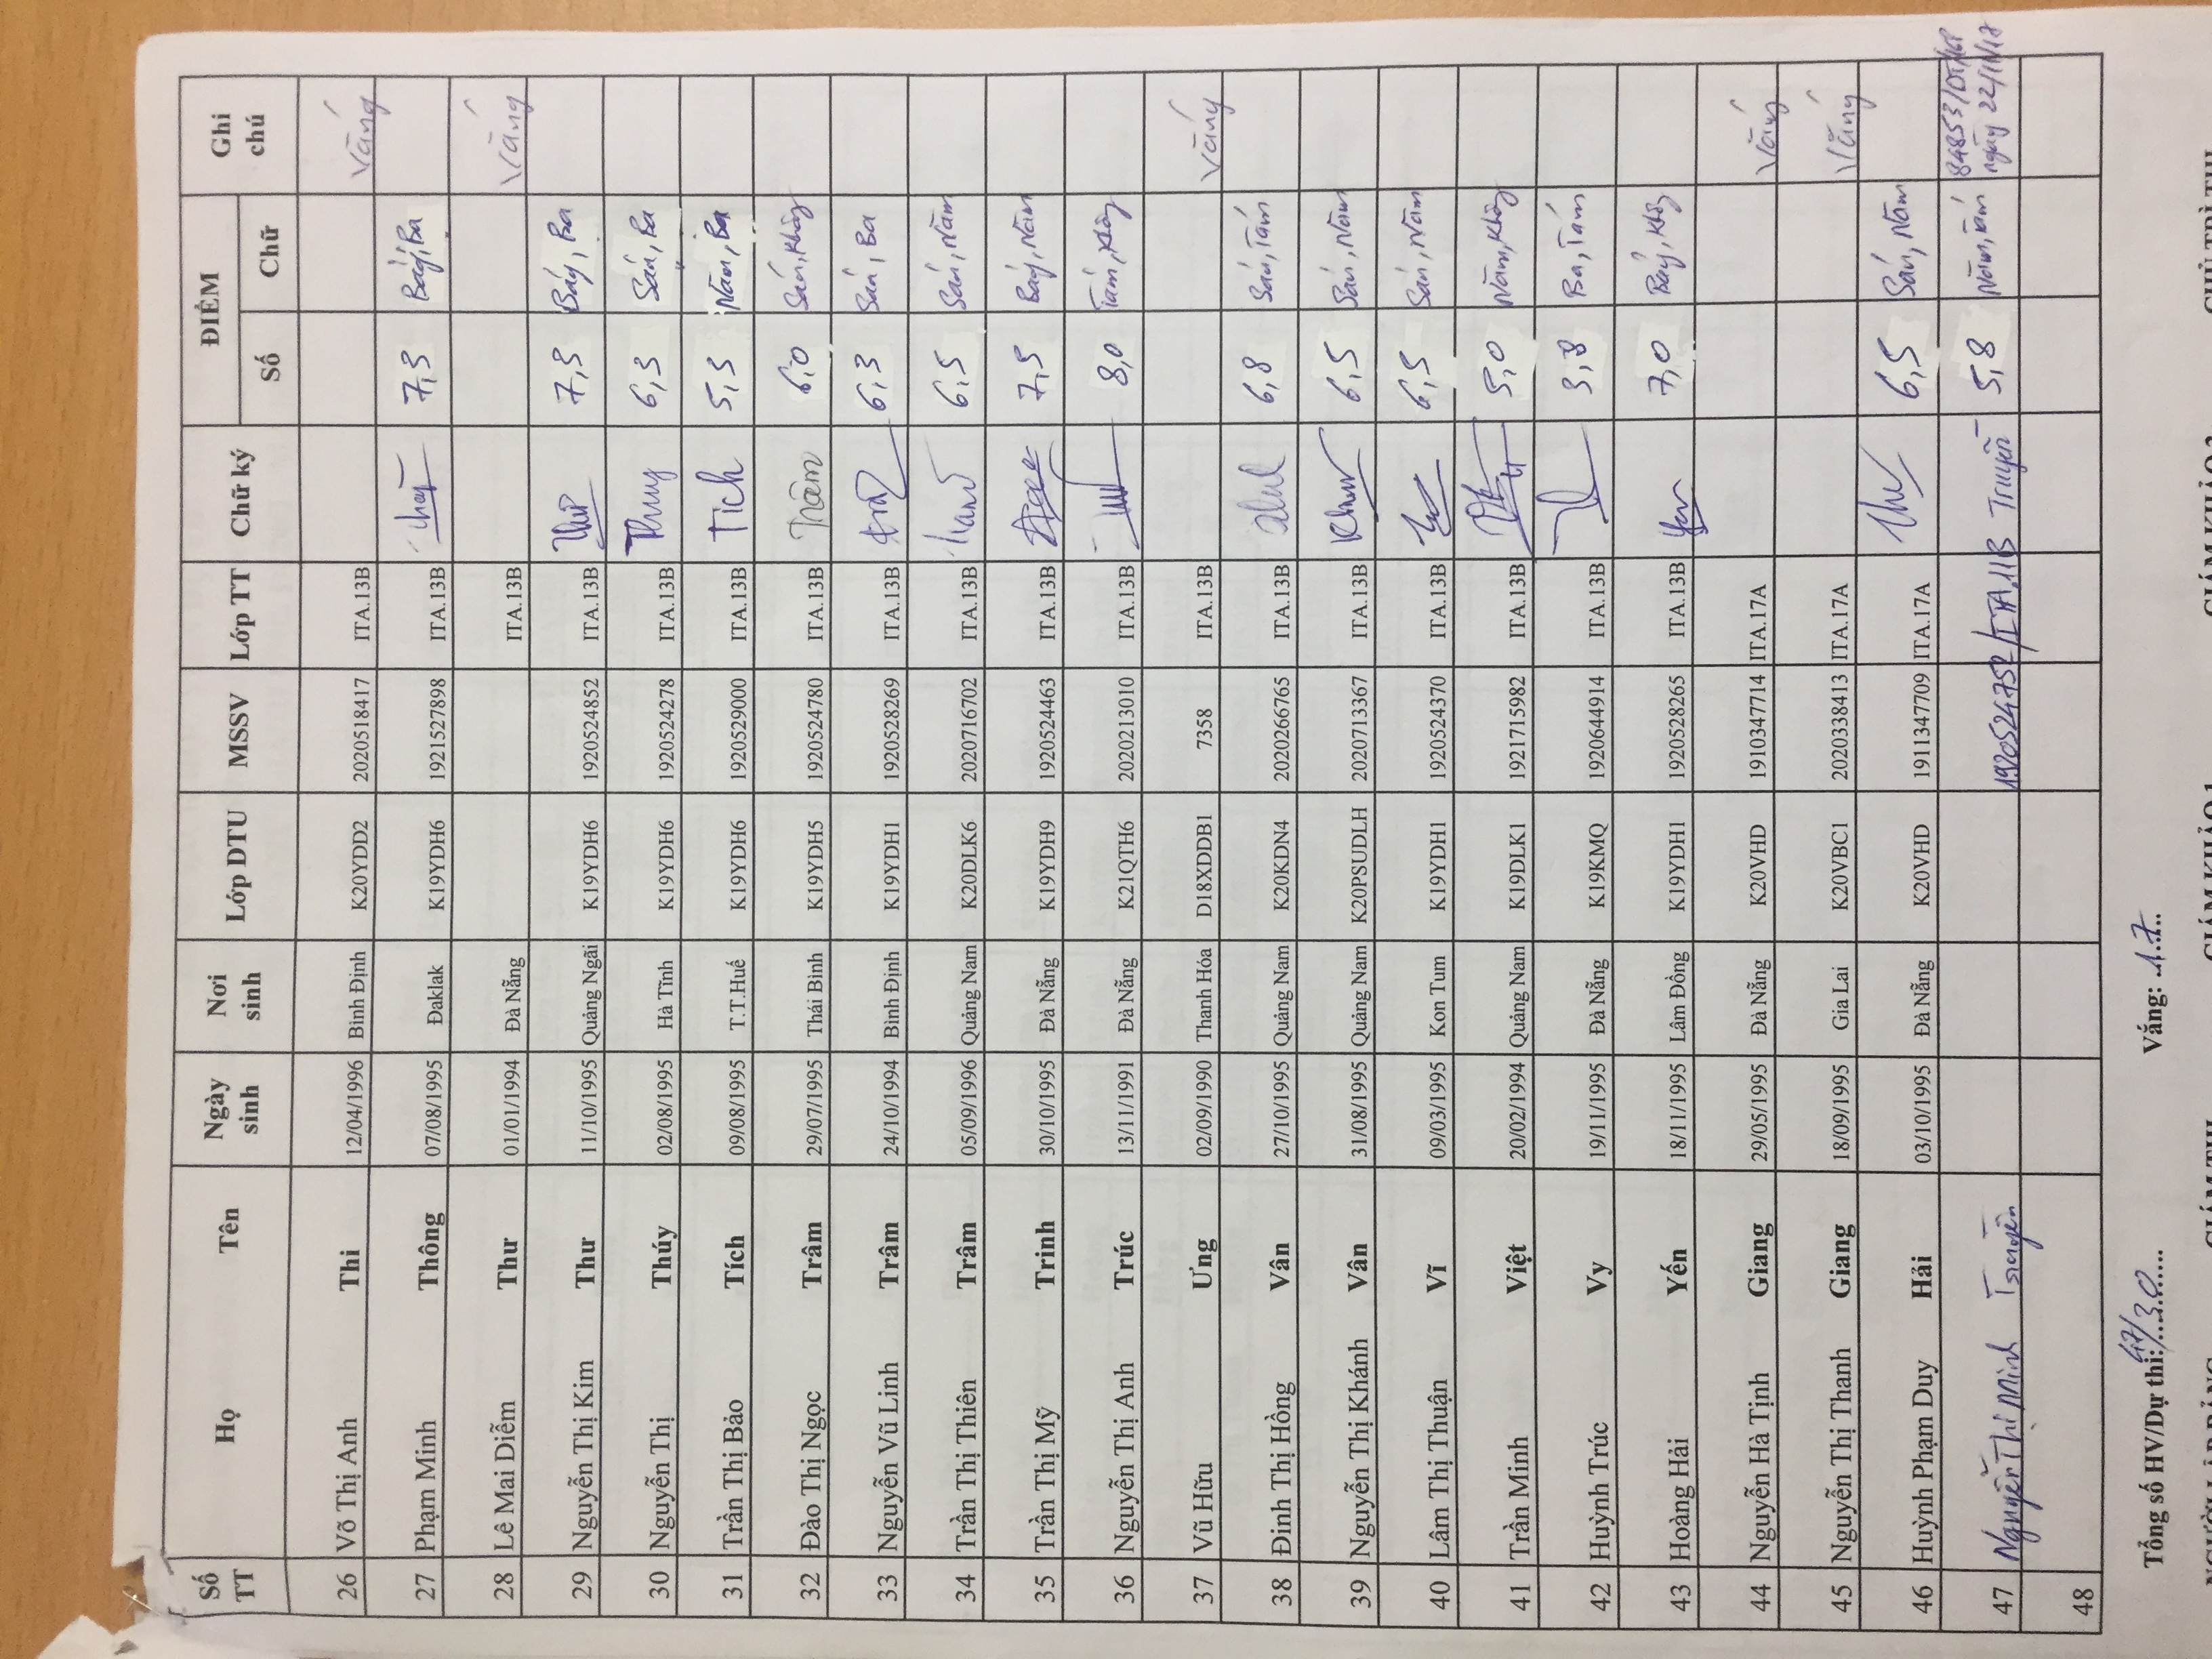 Số TT Họ Tên Ngày sinh Nơi sinh Lớp DTU MSSV Lớp TT Chữ ký ĐIỂM Số Chữ Ghi chú
26 Võ Thị Anh Thi 12/04/1996 Bình Định K20YDD2 2020518417 ITA.13B Vắng
27 Phạm Minh Thông 07/08/1995 Đaklak K19YDH6 1921527898 ITA.13B 7,3 Bảy, Ba
28 Lê Mai Diễm Thư 01/01/1994 Đà Nẵng ITA.13B Vắng
29 Nguyễn Thị Kim Thư 11/10/1995 Quảng Ngãi K19YDH6 1920524852 ITA.13B Thư 7,3 Bảy, Ba
30 Nguyễn Thị Thúy 02/08/1995 Hà Tĩnh K19YDH6 1920524278 ITA.13B Thuy 6,3 Sáu, Ba
31 Trần Thị Bảo Tích 09/08/1995 T.T.Huế K19YDH6 1920529000 ITA.13B Tích 5,3 Năm, Ba
32 Đào Thị Ngọc Trâm 29/07/1995 Thái Bình K19YDH5 1920524780 ITA.13B Trâm 6,0 Sáu, Không
33 Nguyễn Vũ Linh Trâm 24/10/1994 Bình Định K19YDH1 1920528269 ITA.13B 6,3 Sáu, Ba
34 Trần Thị Thiên Trâm 05/09/1996 Quảng Nam K20DLK6 2020716702 ITA.13B 6,5 Sáu, Năm
35 Trần Thị Mỹ Trinh 30/10/1995 Đà Nẵng K19YDH9 1920524463 ITA.13B 7,5 Bảy, Năm
36 Nguyễn Thị Anh Trúc 13/11/1991 Đà Nẵng K21QTH6 2020213010 ITA.13B 8,0 Tám, Không
37 Vũ Hữu Ưng 02/09/1990 Thanh Hóa D18XDDB1 7358 ITA.13B Vắng
38 Đinh Thị Hồng Vân 27/10/1995 Quảng Nam K20KDN4 2020266765 ITA.13B 6,8 Sáu, Tám
39 Nguyễn Thị Khánh Vân 31/08/1995 Quảng Nam K20PSUDLH 2020713367 ITA.13B 6,5 Sáu, Năm
40 Lâm Thị Thuận Vĩ 09/03/1995 Kon Tum K19YDH1 1920524370 ITA.13B 6,5 Sáu, Năm
41 Trần Minh Việt 20/02/1994 Quảng Nam K19DLK1 1921715982 ITA.13B 5,0 Năm, Không
42 Huỳnh Trúc Vy 19/11/1995 Đà Nẵng K19KMQ 1920644914 ITA.13B 3,8 Ba, Tám
43 Hoàng Hải Yến 18/11/1995 Lâm Đồng K19YDH1 1920528265 ITA.13B Yến 7,0 Bảy, Không
44 Nguyễn Hà Tịnh Giang 29/05/1995 Đà Nẵng K20VHD 1910347714 ITA.17A Vắng
45 Nguyễn Thị Thanh Giang 18/09/1995 Gia Lai K20VBC1 2020338413 ITA.17A Vắng
46 Huỳnh Phạm Duy Hải 03/10/1995 Đà Nẵng K20VHD 1911347709 ITA.17A 6,5 Sáu, Năm
47 Nguyễn Thị Minh Truyền 1920524752/ITA.11B Truyền 5,8 Năm, tám ngày 22/11/17
48
Tổng số HV/Dự thi: 47/30 Vắng: 17